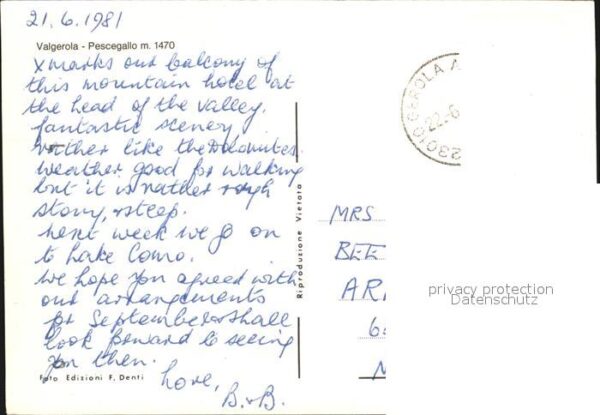 21.6.1981
Valgerola - Pescegallo m. 1470
x marks our balcony of
this mountain hotel at
the head of the valley.
fantastic scenery
rather like the Dolomites.
weather good for walking
but it is rather rough
stony, & steep.
next week we go on
to Lake Como.
We hope you agreed with
our arrangements
for September & shall
look forward to seeing
you then.
Love,
B. & B.
Foto Edizioni F. Denti
Riproduzione Vietata
23010 GEROLA A
22-6
MRS
BEE
AR
6
privacy protection
Datenschutz